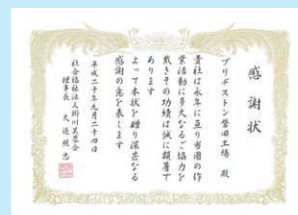 感謝状
ブリヂストン磐田工場 殿
貴社は永年に亘り当園の作
業活動に多大なるご協力を
戴きその功績は誠に顕著で
あります
よって本状を贈り深甚なる
感謝の意を表します
平成二十年九月二十四日
社会福祉法人掛川芙蓉会
理事長